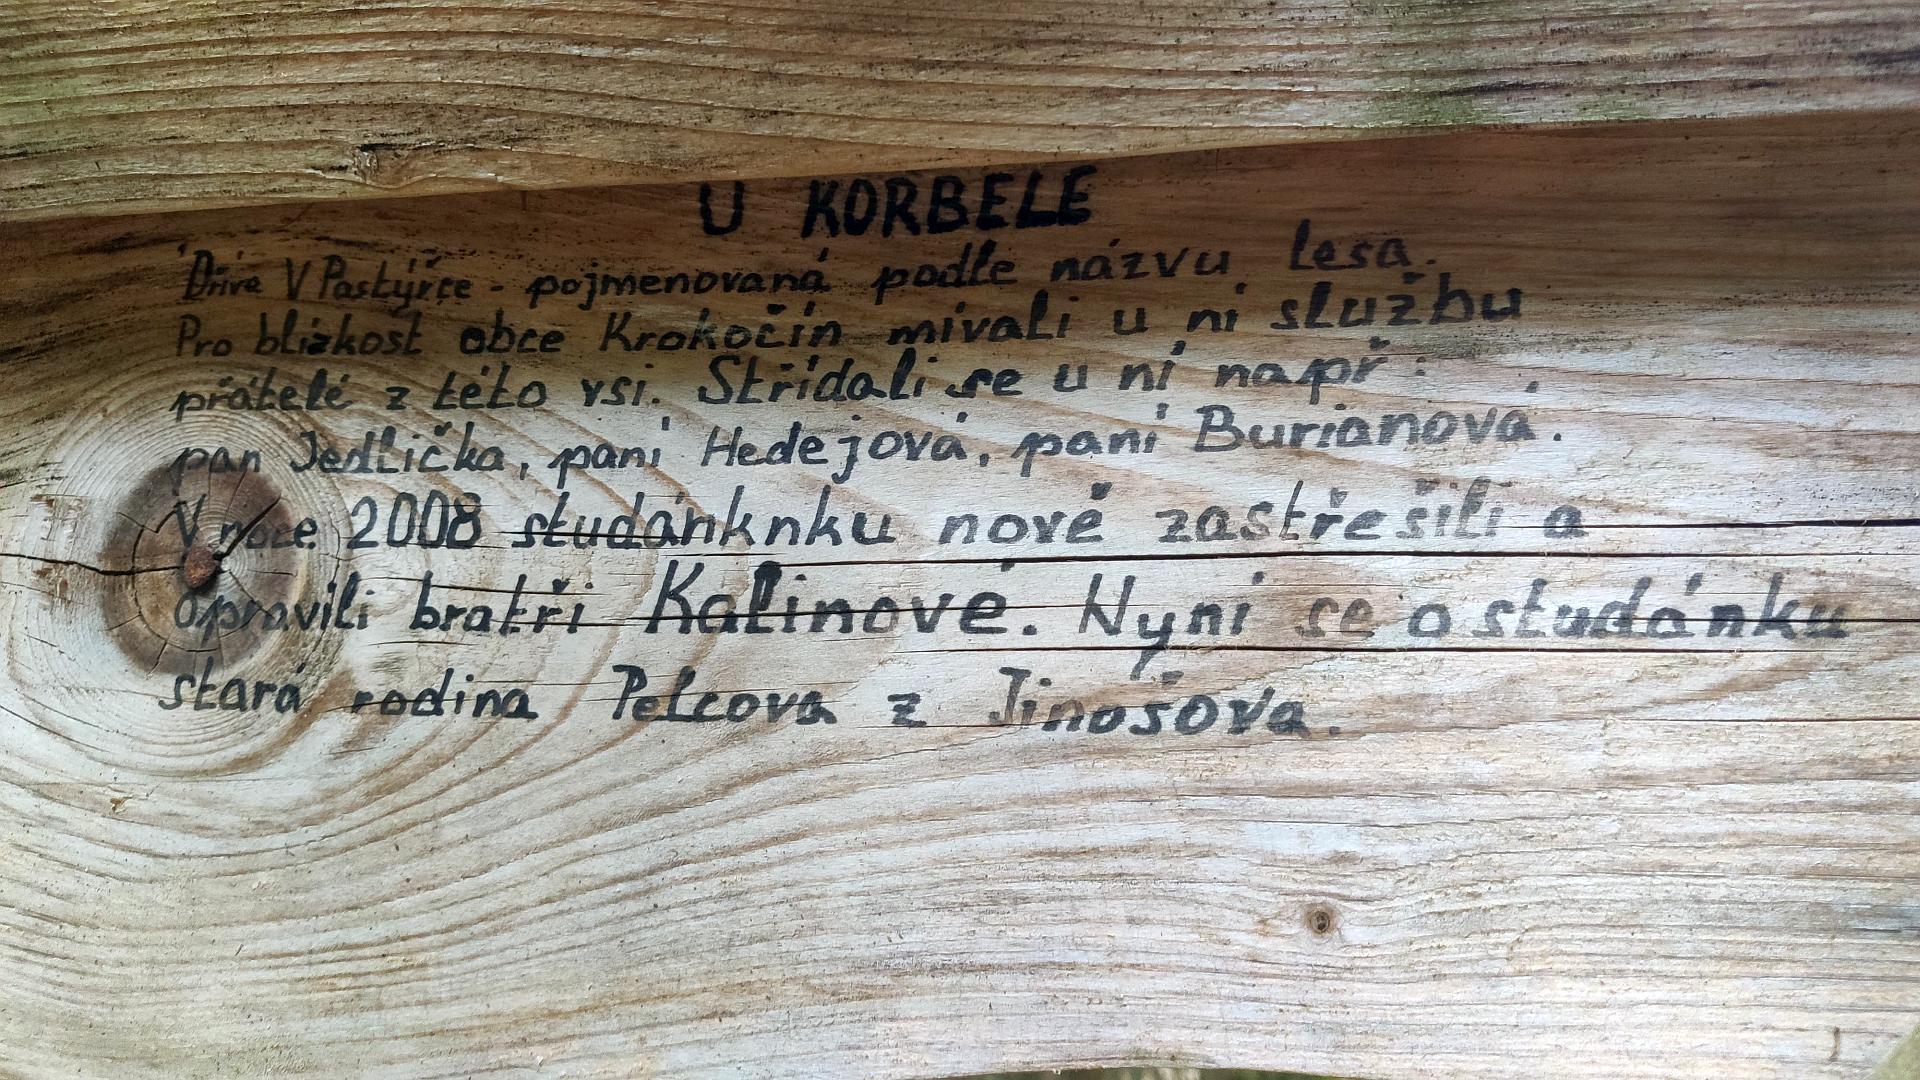 U KORBELE
Dříve V Pastýřce - pojmenovaná podle názvu lesa.
Pro blízkost obce Krokočín mívali u ní službu
přátelé z této vsi. Střídali se u ní např:
pan Jedlička, paní Hedejová, paní Burianová.
V roce 2008 studánknku nově zastřešili a
opravili bratři Kalinové. Nyní se o studánku
stará rodina Pelcova z Jinošova.